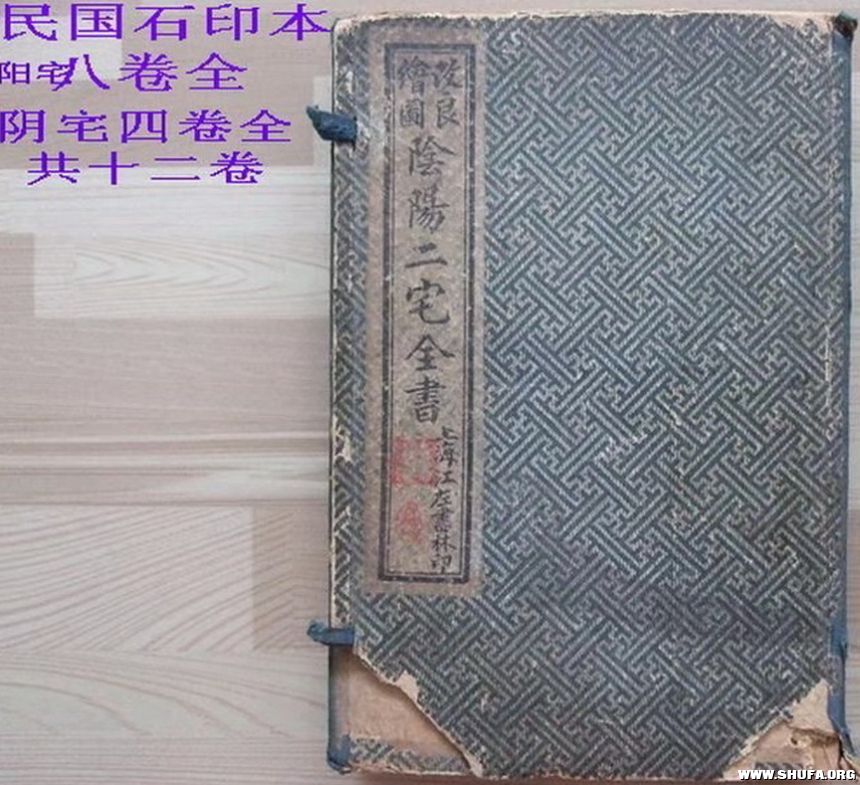 民国石印本
阳宅八卷全
阴宅四卷全
共十二卷
改良
繪圖
陰陽二宅全書
上海江左書林印
WWW.SHUFA.ORG